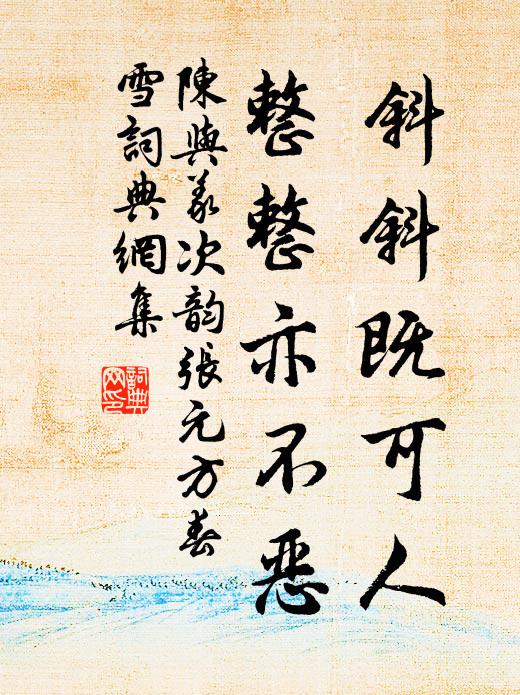 斜斜既可人
整整亦不惡
陳與義次韵張元方春
雪詞典網集
詞典
网印